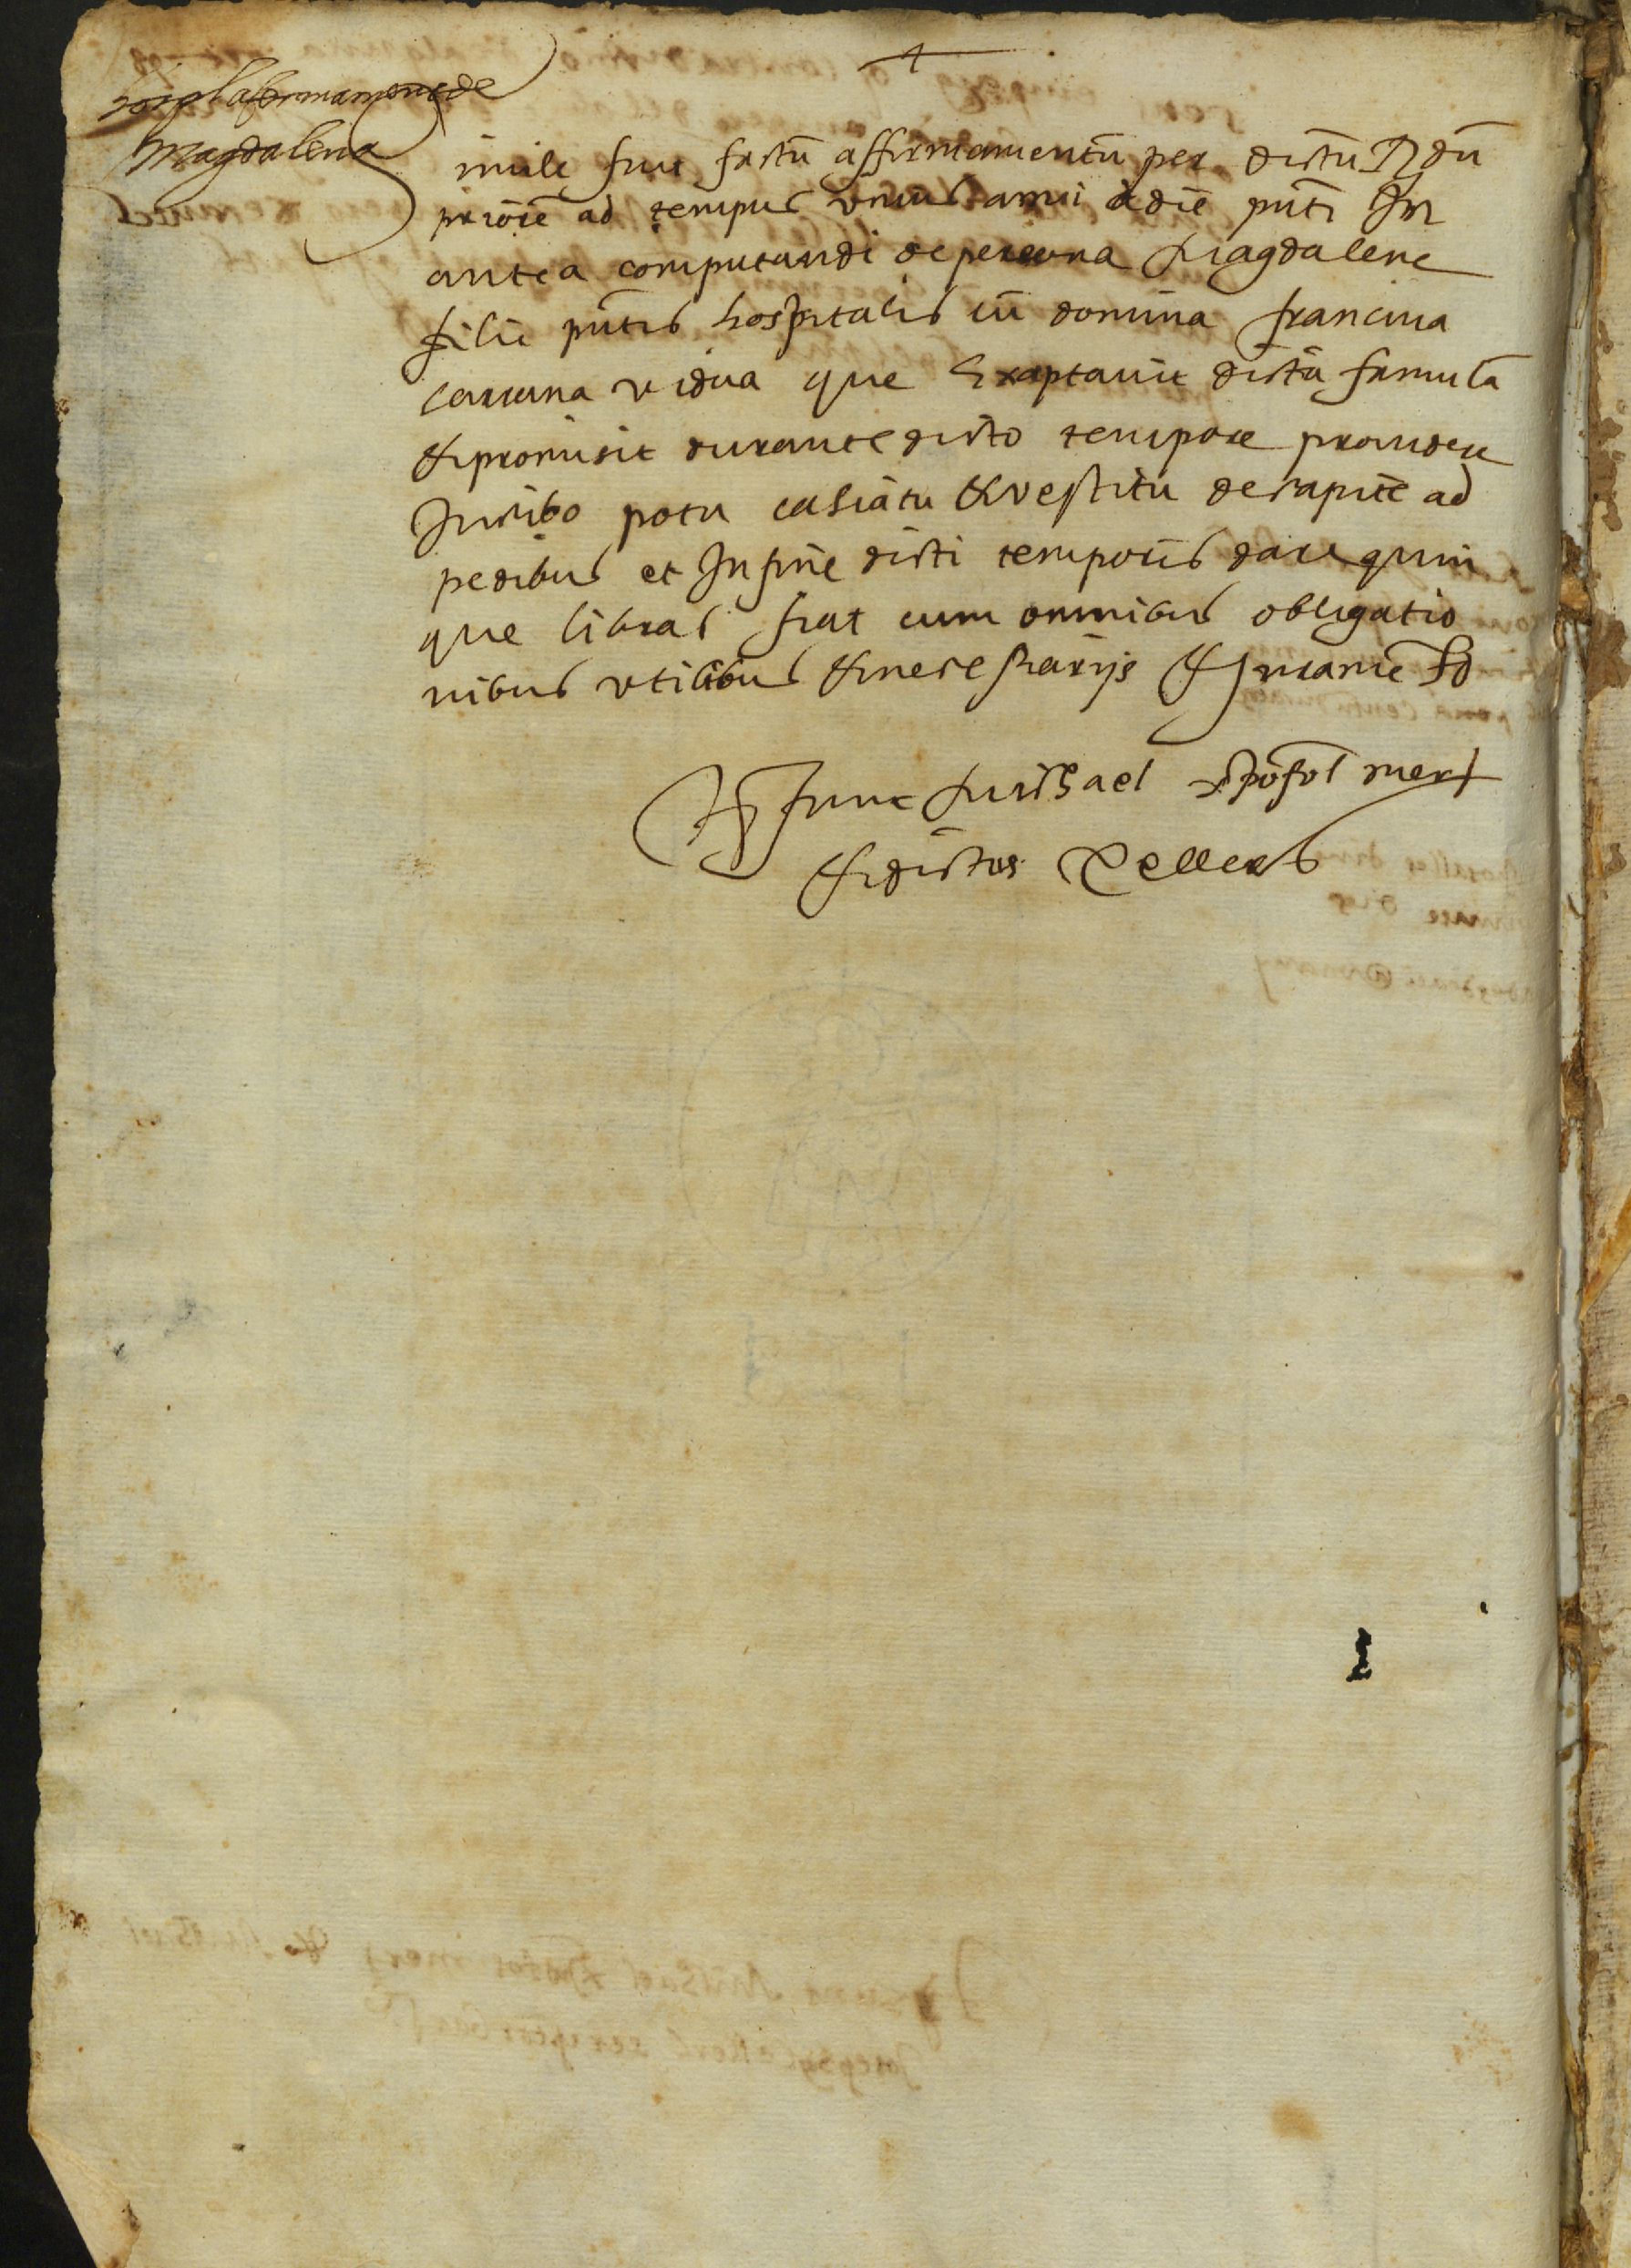 afermament de
Magdalena
imile fuit factū affirmamentū per dictū R dū
priorē ad tempus unius anni a diē pn̄ti In
antea computandi de persona Magdalene
filie pn̄tis hospitalis cū domina francina
vidua que Exaptavit dictā famulā
& promisit durante dicto tempore providere
In cibo potu calsiatu & vestitu de capite ad
pedibus et In fine dicti temporis dare quin
que libras fiat cum omnibus obligatio
nibus utilibus & necessarijs & Juramē
T sunt Michael mer
& dictus Pellers